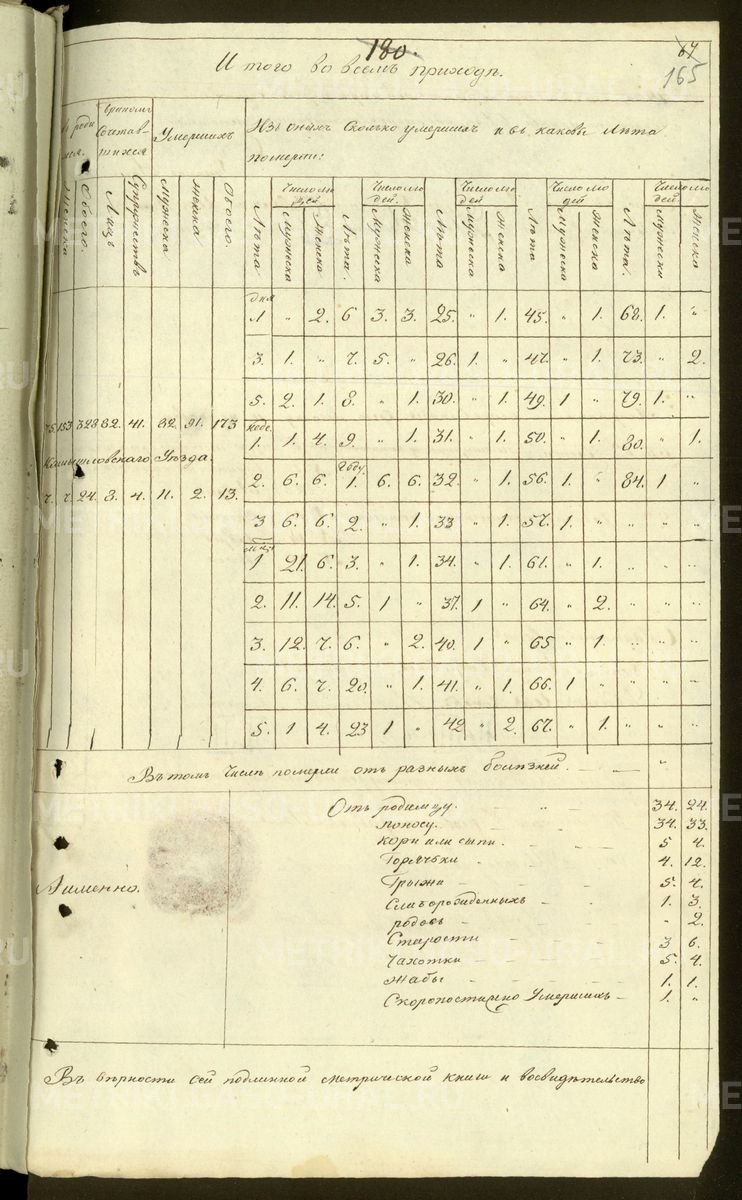 180.
67
165
Итого во всемъ приходѣ.
бракомъ Сочетавшихся
Умершихъ
Изъ оныхъ сколько умершихъ и въ каковы Лѣта
померли:
Число людей Число людей Число людей Число людей Число людей
Женска Обоего Лицъ Супружествъ Мужеска Женска Обоего Лѣта. Мужеска Женска Лѣта. Мужеска Женска Лѣта Мужеска Женска Лѣта Мужеска Женска Лѣта. Мужеска Женска
дня
1 " 2. 6 3. 3. 25. " 1. 45. " 1. 68. 1. "
3. 1. " 7. 5. " 26. 1. " 47. " 1. 73. " 2.
5. 2. 1. 8. " 1. 30. " 1. 49. 1 " 79. 1. "
153. 328 82. 41. 82. 91. 173
1. 1. 4. 9. " 1. 31. " 1. 50. " 1. 80. " 1.
Камышловскаго Уѣзда.
Году
2. 6. 6. 1. 6. 6. 32. " 1. 56. 1. " 84. 1 "
7. 7. 24. 8. 4. 11. 2. 13.
3 6. 6. 2. " 1. 33 " 1. 57. 1. " " " "
1 21. 6. 3. " 1. 34. " 1. 61. " 1. " " "
2. 11. 14. 5. 1 " 37. 1 " 64. " 2. " " "
3. 12. 7. 6. " 2. 40. 1 " 65 " 1. " " "
4. 6. 7. 20. " 1. 41. " 1. 66. 1 " " " "
5. 1 4. 23 1 " 42 " 2. 67. " 1. " " "
Въ томъ числѣ померли отъ разныхъ болѣзней. "
Отъ родимцу. 34. 24.
поносу. 34. 33.
Кори или сыпи. 5 4.
Горячьки 4. 12.
А именно. Грыжи 5. 4.
Слаборожденныхъ 1. 3.
родовъ " 2.
Старости 3 6.
Чахотки 5. 4.
Жабы 1. 1.
Скоропостижно Умершихъ 1. "
Въ вѣрности сей подлинной метрической книги и восвидѣтельство